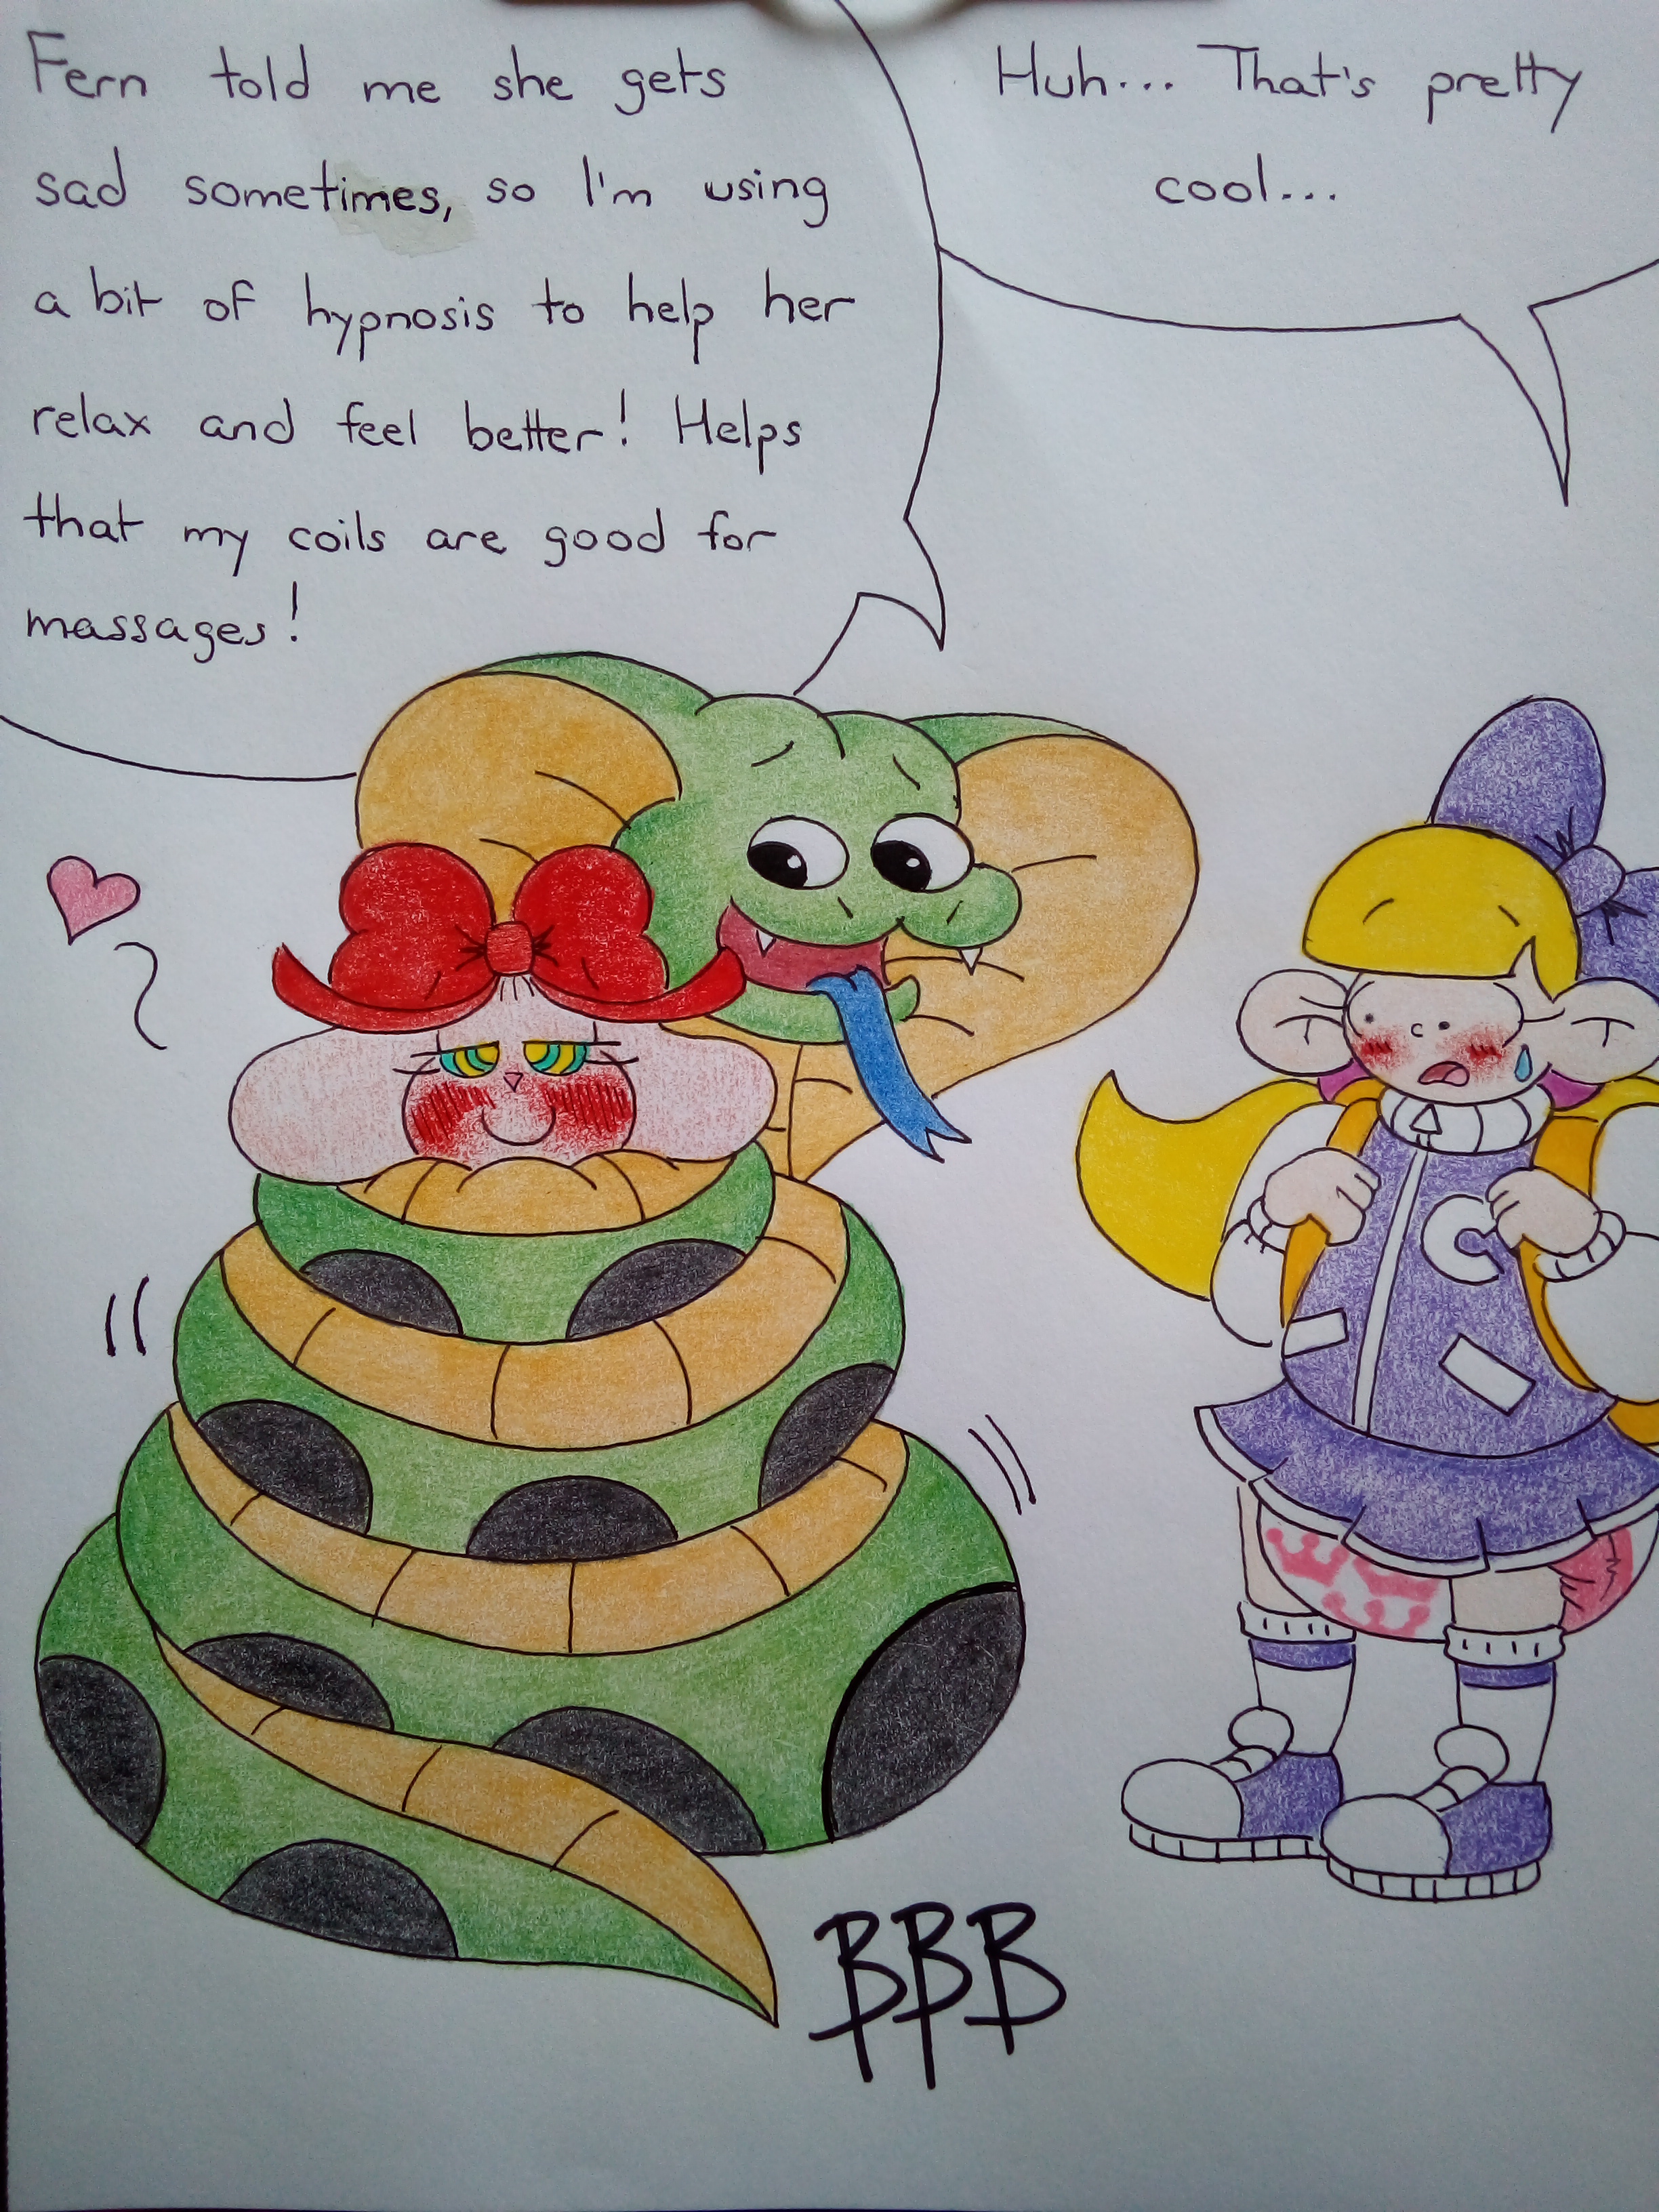 Fern told me she gets
sad sometimes, so I'm using
a bit of hypnosis to help her
relax and feel better! Helps
that my coils are good for
massages!
Huh... That's pretty
cool...
C
BBB